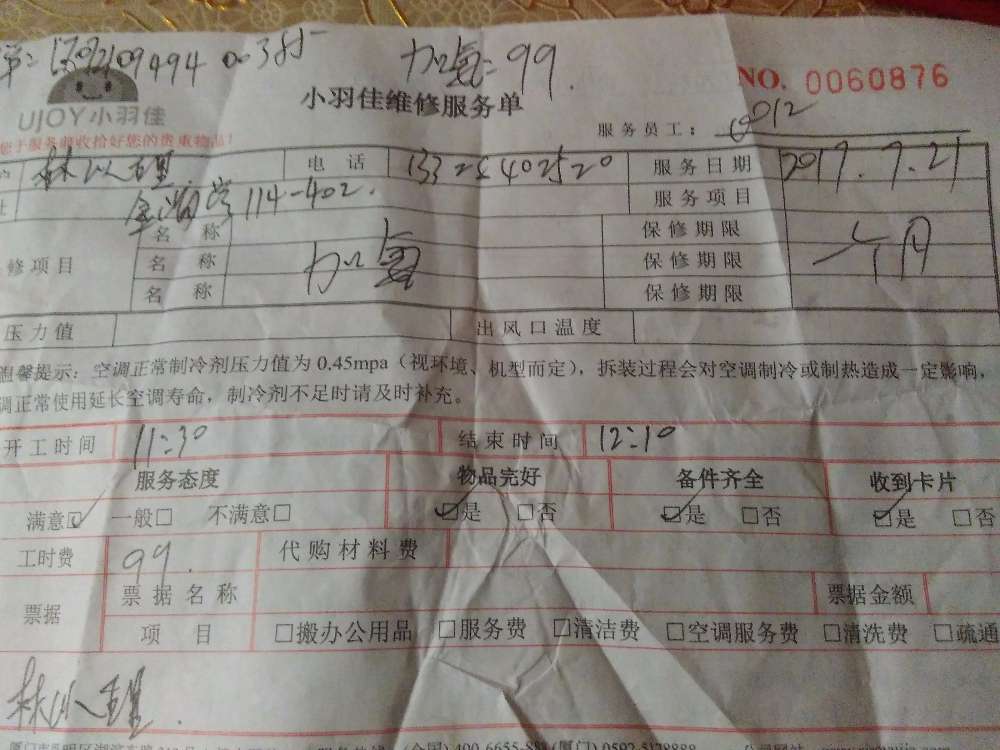 加氟:99
NO. 0060876
UJOY小羽佳
小羽佳维修服务单
服务员工:
您于服务前收拾好您的贵重物品!
电话 服务日期 2017.7.21
114-402. 服务项目
名称 保修期限
修项目 名称 加氟 保修期限 一个月
名称 保修期限
压力值 出风口温度
温馨提示:空调正常制冷剂压力值为0.45mpa(视环境、机型而定),拆装过程会对空调制冷或制热造成一定影响,
调正常使用延长空调寿命,制冷剂不足时请及时补充。
开工时间 11:30 结束时间 12:10
服务态度 物品完好 备件齐全 收到卡片
满意☑ 一般□ 不满意□ ☑是 □否 ☑是 □否 ☑是 □否
工时费 99. 代购材料费
票据 票据名称 票据金额
项目 □搬办公用品 □服务费 □清洁费 □空调服务费 □清洗费 □疏通